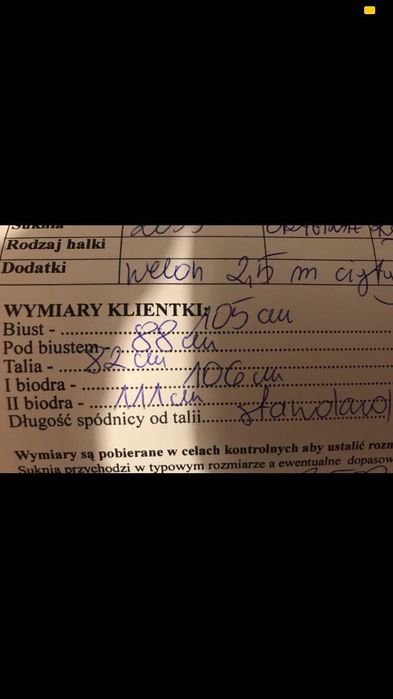 Suknia
Rodzaj halki
Dodatki welon 2,5 m
WYMIARY KLIENTKI:
Biust - 105 cm
Pod biustem - 88 cm
Talia - 82 cm
I biodra - 106 cm
II biodra - 111 cm
Długość spódnicy od talii
Wymiary są pobierane w celach kontrolnych aby ustalić rozm
Suknia przychodzi w typowym rozmiarze a ewentualne dopasow